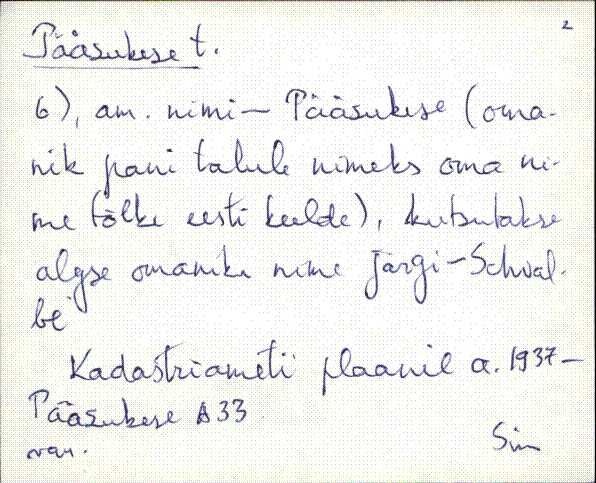 2
Pääsukese t.
6), am. nimi - Pääsukese (oma-
nik pani talule nimeks oma ni-
me tõlke eesti keelde), kutsutakse
algse omaniku nime järgi - Schwal-
be
Kadastriameti plaanil a. 1937 -
Pääsukese A33
Sim